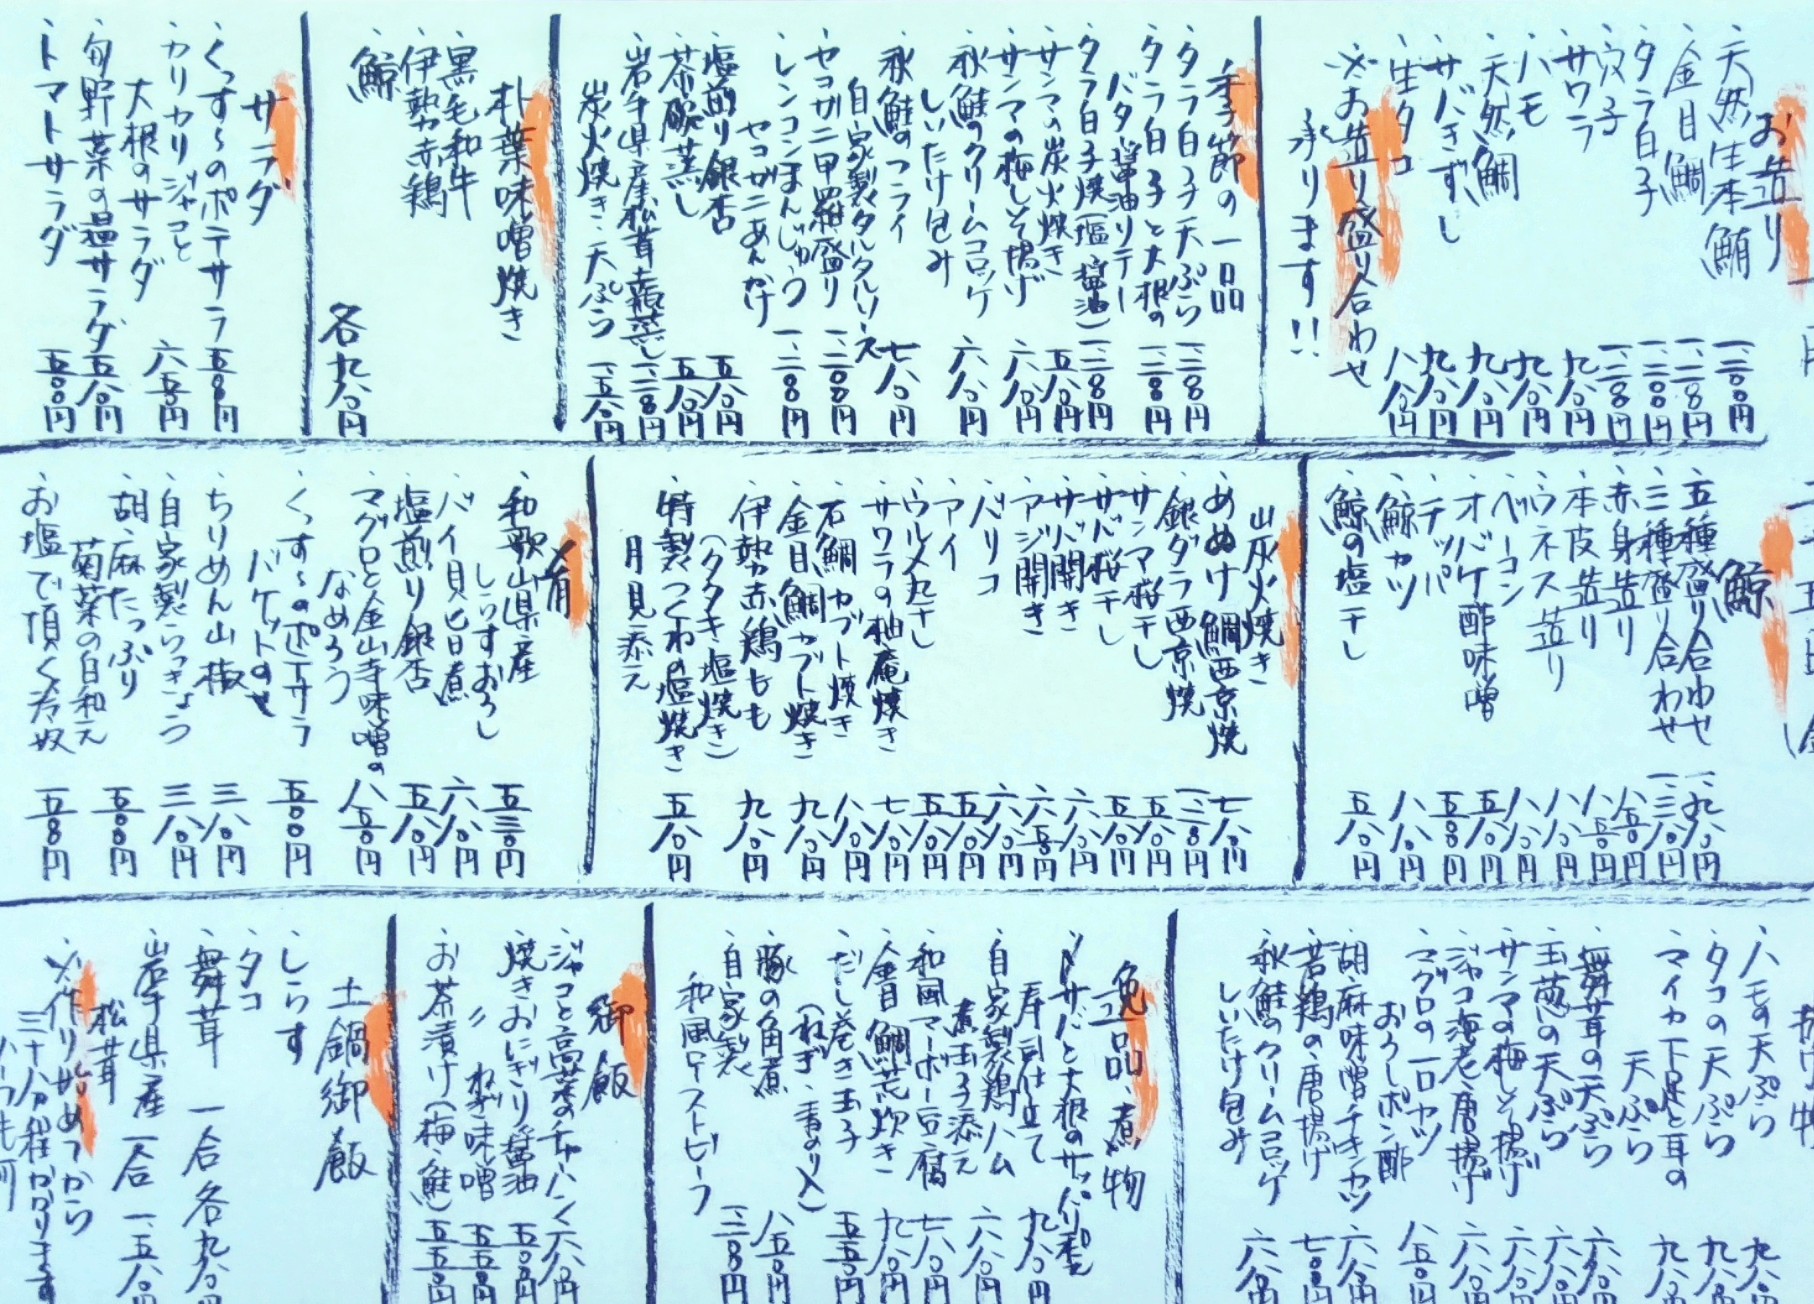 お造り
天然生本鮪 一、二〇〇円
金目鯛 一、二八〇円
タラ白子 一、二〇〇円
穴子 一、二八〇円
サワラ 九八〇円
ハモ 九八〇円
天然鯛 九八〇円
サバきずし 九八〇円
生タコ 八八〇円
※お造り盛り合わせ
承ります!!
季節の一品
タラ白子天ぷら 一、二八〇円
タラ白子と大根の
バタ醤油ソテー 一、二八〇円
タラ白子焼(塩・醤油) 一、二八〇円
サンマの炭火焼き 五八〇円
サンマの梅しそ揚げ 六八〇円
秋鮭のクリームコロッケ
しいたけ包み 六八〇円
秋鮭のフライ
自家製タルタルソース 七八〇円
セコガニ甲羅盛り 一、二〇〇円
レンコンまんじゅう
セコガニあんかけ 一、二八〇円
塩煎り銀杏 五八〇円
茶碗蒸し 五八〇円
岩手県産松茸土瓶蒸し 一、二八〇円
炭火焼き・天ぷら 一、五八〇円
朴葉味噌焼き
黒毛和牛
伊勢赤鶏
鯨
各九八〇円
サラダ
くっすーのポテサラ 五〇〇円
カリカリジャコと
大根のサラダ 六五〇円
旬野菜の温サラダ 五八〇円
トマトサラダ 五〇〇円
鯨
五種盛り合わせ 一、九八〇円
三種盛り合わせ 一、三八〇円
赤身造り 八五〇円
本皮造り 八五〇円
ウネス造り 八八〇円
ベーコン 八八〇円
オバケ酢味噌 五八〇円
テッパ 五五〇円
鯨カツ 八八〇円
鯨の塩干し 五八〇円
炭火焼き
めぬけ鯛西京焼 七八〇円
銀ダラ西京焼 一、二八〇円
サンマ桜干し 五五〇円
サバ桜干し 五五〇円
サバ開き 六八〇円
アジ開き 六五〇円
バリコ 六八〇円
アイ 五五〇円
ウルメ丸干し 五五〇円
サワラの柚庵焼き 七八〇円
石鯛カブト焼き 八八〇円
金目鯛カブト焼き 九八〇円
伊勢赤鶏もも
(タタキ・塩焼き) 九八〇円
特製つくねの塩焼き
月見添え 五八〇円
肴
和歌山県産
しらすおろし 五三〇円
バイ貝旨煮 六八〇円
塩煎り銀杏 五八〇円
マグロと金山寺味噌の
なめろう 八五〇円
くっすーのポテサラ
バケットのせ 五〇〇円
ちりめん山椒 三八〇円
自家製らっきょう 三八〇円
胡麻たっぷり
菊菜の白和え 五〇〇円
お塩で頂く冷奴 五〇〇円
揚げ物
ハモの天ぷら 九八〇
タコの天ぷら 九八〇
マイカ下足と耳の
天ぷら 九八〇
舞茸の天ぷら 六八〇
玉葱の天ぷら 六八〇円
サンマの梅しそ揚げ 六八〇円
ジャコ海老唐揚げ 六八〇円
マグロの一口カツ
おろしポン酢 八五〇円
胡麻味噌チキンカツ 六八〇円
若鶏の唐揚げ 七〇〇円
秋鮭のクリームコロッケ
しいたけ包み 六八〇円
逸品 煮物
トサバと大根のサッパリ煮
寿司仕立て 九八〇円
自家製鶏ハム
煮玉子添え 六八〇円
和風マーボー豆腐 七八〇円
金目鯛荒炊き 九八〇円
だし巻き玉子
(ねぎ・青のり入) 五五〇円
豚の角煮 八五〇円
自家製
和風ローストビーフ 一、二八〇円
御飯
ジャコと高菜のチャーハン 六八〇円
焼きおにぎり醤油 五〇〇円
〃 ねぎ味噌 五五〇円
お茶漬け(梅・鮭) 五五〇円
土鍋御飯
しらす
タコ
舞茸 一合各九八〇円
岩手県産
松茸 一合 一、五八〇円
※作り始めてから
三十分程かかります